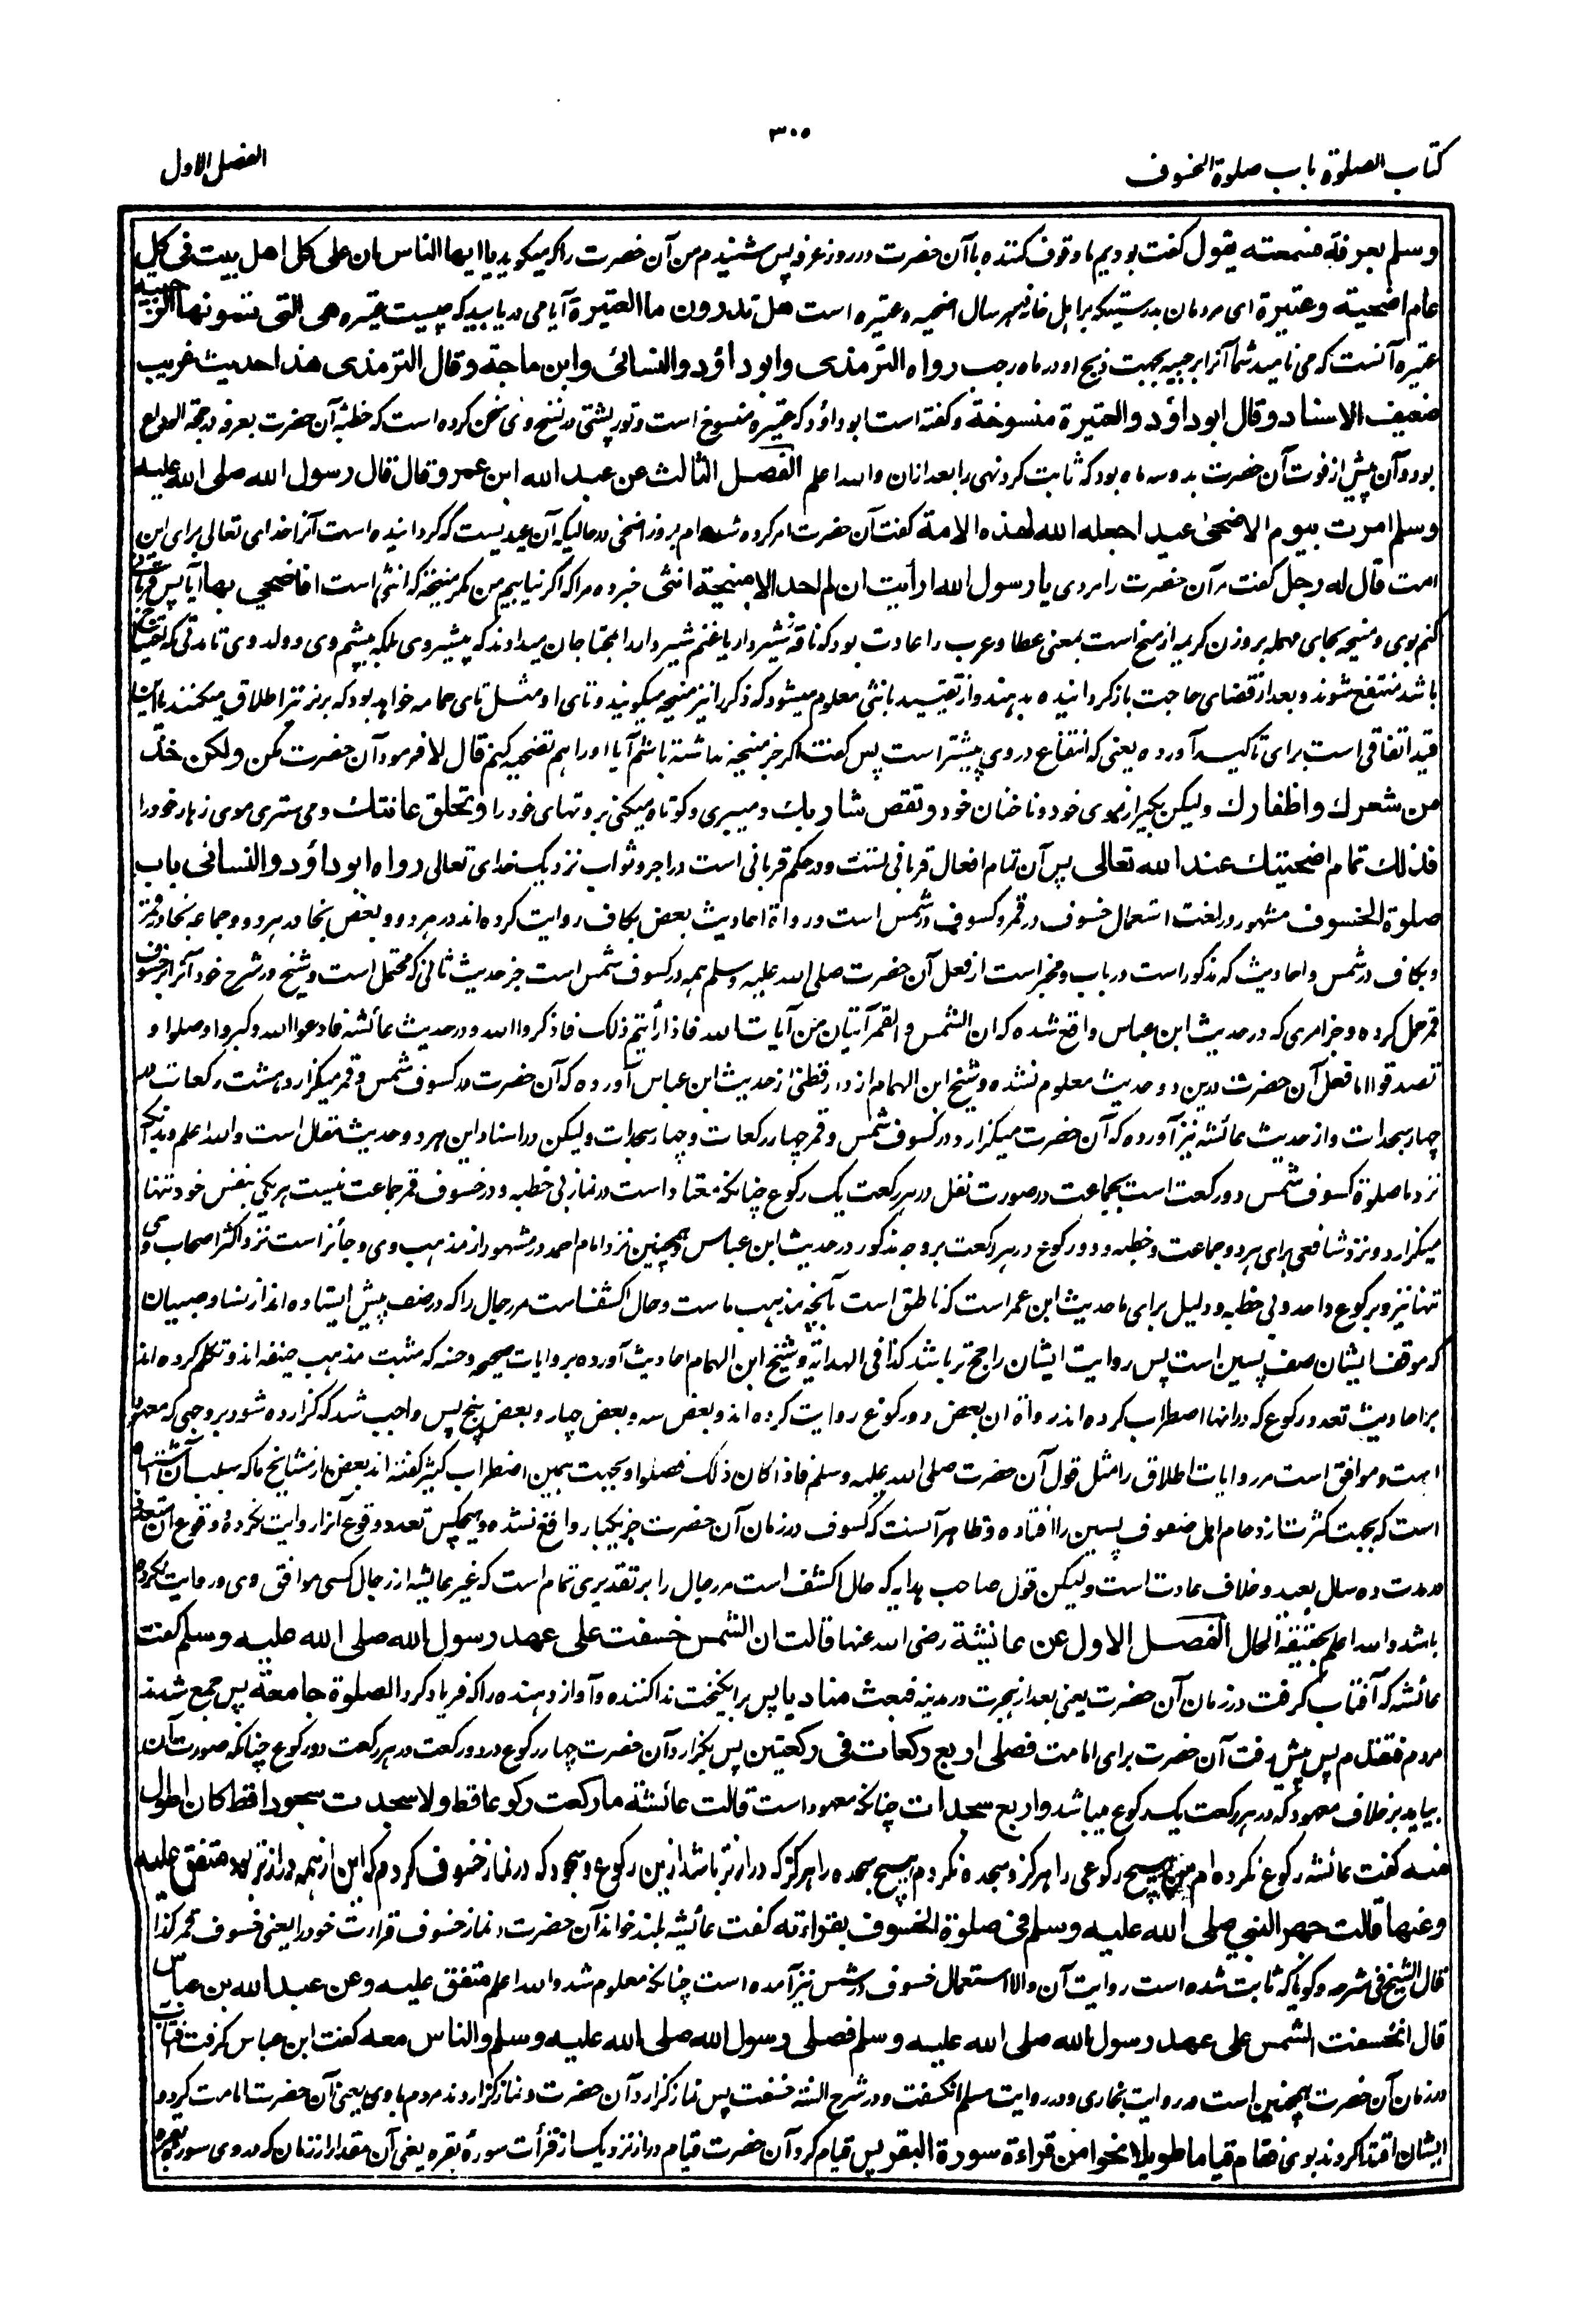 ۳۰۵
کتاب الصلوة باب صلوة الخسوف
الفصل الاول
وسلم بعرفة فسمعته يقول گفت بودیم ما وقوف کننده با آن حضرت در روز عرفه پس شنیدم من آن حضرت را که میگوید یا ایها الناس ان علی کل اهل بیت فی کل
عام اضحیة وعتیرة ای مردمان بدرستیکه بر اهل خانه هر سال اضحیه وعتیره است هل تدرون ما العتیرة آیا می دریابید که چیست عتیره هی التی تسمونها الرجبیه
عتیره آنست که می نامید شما آنرا رجبیه بجهت ذبح او در ماه رجب رواه الترمذی وابو داؤد والنسائی وابن ماجة وقال الترمذی هذا حدیث غریب
ضعیف الاسناد وقال ابوداؤد والعتیرة منسوخة وگفته است ابو داؤد که عتیره منسوخ است وتورپشتی در نسخ وی سخن کرده است که خطبه آن حضرت بعرفه در حجة الوداع
بود وآن پیش از فوت آن حضرت بدو سه ماه بود که ثابت کرد نهی را بعد ازان والله اعلم الفصل الثالث عن عبد الله ابن عمرو قال قال رسول الله صلی الله علیه
وسلم امرت بیوم الاضحی عیدا جعله الله لهذه الامة گفت آن حضرت امر کرده شده ام بروز اضحی در حالیکه آن عیدیست که گردانیده است آنرا خدای تعالی برای این
امت قال له رجل گفت مر آن حضرت را مردی یا رسول الله ارأیت ان لم اجد الا منیحة انثی خبر ده مرا که اگر نیابم من مگر منیحه که انثی است افاضحی بها آیا پس قربانی
کنم بوی ومنیحه بحای مهمله بروزن کریمه از منح است بمعنی عطا وعرب را عادت بود که ناقه شیردار یا غنم شیردار را بمحتاجان میدادند که بشیر وی بلکه بپشم وی وولد وی تا مدتی که احتیاج
باشد منتفع شوند وبعد از قضای حاجت باز گردانیده بدهند واز تقیید بانثی معلوم میشود که ذکر را نیز منیحه میگویند وتای او مثل تای حمامه خواهد بود که بر نر نیز اطلاق میکنند یا آنکه
قید اتفاقی است برای تاکید آورده یعنی که انتفاع در وی بیشتر است پس گفت اگر جز منیحه نداشته باشم آیا او را هم تضحیه کنم قال لا فرمود آن حضرت مکن ولکن خذ
من شعرك واظفارك ولیکن بگیر از موی خود وناخنان خود وتقص شاربك ومیبری وکوتاه میکنی بروتهای خود را وتحلق عانتك ومی ستری موی زهار خود را
فذلك تمام اضحیتك عند الله تعالی پس آن تمام افعال قربانی تست ودر حکم قربانی است در اجر وثواب نزدیک خدای تعالی رواه ابوداؤد والنسائی باب
صلوة الخسوف مشهور در لغت استعمال خسوف در قمر وکسوف در شمس است ورواة احادیث بعض بکاف روایت کرده اند در هر دو وبعض بخا در هر دو وجماعه بخا در قمر
وبکاف در شمس واحادیث که مذکور است در باب ومخبر است از فعل آن حضرت صلی الله علیه وسلم همه در کسوف شمس است جز حدیث ثانی که محتمل است وشیخ در شرح خود آنرا بر خسوف
قمر حمل کرده وجز امری که در حدیث ابن عباس واقع شده که ان الشمس والقمر آیتان من آیات الله فاذا رأیتم ذلک فاذکروا الله ودر حدیث عائشه فادعوا الله وکبروا وصلوا و
تصدقوا اما فعل آن حضرت درین دو حدیث معلوم نشده وشیخ ابن الهمام از دارقطنی از حدیث ابن عباس آورده که آن حضرت در کسوف شمس وقمر میگزارد هشت رکعات در
چهار سجدات واز حدیث عائشه نیز آورده که آن حضرت میگزارد در کسوف شمس وقمر چهار رکعات وچهار سجدات ولیکن در اسناد این هر دو حدیث مقال است والله اعلم وبدانکه
نزد ما صلوة کسوف شمس دو رکعت است بجماعت در صورت نفل در هر رکعت یک رکوع چنانکه معتاد است در نماز بی خطبه ودر خسوف قمر جماعت نیست هر یکی بنفس خود تنها
میگزارد ونزد شافعی برای هر دو جماعت وخطبه ودو رکوع در هر رکعت بر وجه مذکور در حدیث ابن عباس وهمچنین نزد امام احمد در مشهور از مذهب وی وجائز است نزد اکثر اصحاب وی
تنها نیز وبرکوع واحد وبی خطبه ودلیل برای ما حدیث ابن عمر است که ناطق است بآنچه مذهب ماست وحال اکشف است مر رجال را که در صف پیش ایستاده اند از نسا وصبیان
که موقف ایشان صف پسین است پس روایت ایشان راجح تر باشد کذا فی الهدایة وشیخ ابن الهمام احادیث آورده بروایات صحیحه وحسنه که مثبت مذهب حنفیه اند وتکلم کرده اند
بر احادیث تعدد رکوع که درانها اضطراب کرده اند رواة ان بعض دو رکوع روایت کرده اند وبعض سه وبعض چهار وبعض پنج پس واجب شد که گزارده شود بر وجهی که معهود
است وموافق است مر روایات اطلاق را مثل قول آن حضرت صلی الله علیه وسلم فاذا کان ذلک فصلوا وبجهت همین اضطراب کثیر گفته اند بعض از مشایخ ما که سبب آن اشتباه
است که بجهت کثرت ازدحام اهل صفوف پسین را افتاده وظاهر آنست که کسوف در زمان آن حضرت جز یکبار واقع نشده وهیچکس تعدد وقوع آنرا روایت نکرده ووقوع آن متعدد
در مدت ده سال بعید وخلاف عادت است ولیکن قول صاحب هدایه که حال اکشف است مر رجال را بر تقدیری تمام است که غیر عایشه از رجال کسی موافق وی روایت نکرده
باشد والله اعلم بحقیقة الحال الفصل الاول عن عائشة رضی الله عنها قالت ان الشمس خسفت علی عهد رسول الله صلی الله علیه وسلم گفت
عائشه که آفتاب گرفت در زمان آن حضرت یعنی بعد از هجرت در مدینه فبعث منادیا پس برانگیخت ندا کننده وآواز دهنده را که فریاد کرد الصلوة جامعة پس جمع شدند
مردم فتقدم پس پیش رفت آن حضرت برای امامت فصلی اربع رکعات فی رکعتین پس بگزارد آن حضرت چهار رکوع در دو رکعت در هر رکعت دو رکوع چنانکه صورت آن
بیاید بر خلاف معهود که در هر رکعت یک رکوع میباشد واربع سجدات چنانکه معهود است قالت عائشة ما رکعت رکوعا قط ولا سجدت سجودا قط کان اطول
منه گفت عائشه رکوع نکرده ام من هیچ رکوعی را هرگز وسجده نکردم هیچ سجده را هرگز که درازتر باشد ازین رکوع وسجود که در نماز خسوف کردم که این از همه درازتر بود متفق علیه
وعنها قالت جهر النبی صلی الله علیه وسلم فی صلوة الخسوف بقراءته گفت عائشه بلند خواند آن حضرت در نماز خسوف قراءت خود را یعنی خسوف قمر کذا
قال الشیخ فی شرحه وگویا که ثابت شده است روایت آن والا استعمال خسوف در شمس نیز آمده است چنانکه معلوم شد والله اعلم متفق علیه وعن عبد الله بن عباس
قال انخسفت الشمس علی عهد رسول الله صلی الله علیه وسلم فصلی رسول الله صلی الله علیه وسلم والناس معه گفت ابن عباس گرفت آفتاب
در زمان آن حضرت همچنین است در روایت بخاری ودر روایت مسلم انکسفت ودر شرح السنه خسفت پس نماز گزارد آن حضرت ونماز گزاردند مردم با وی یعنی آن حضرت امامت کرد و
ایشان اقتدا کردند بوی فقام قیاما طویلا نحوا من قراءة سورة البقر پس قیام کرد آن حضرت قیام دراز نزدیک از قرأت سورۀ بقره یعنی آن مقدار از زمان که در وی سورۀ بقره